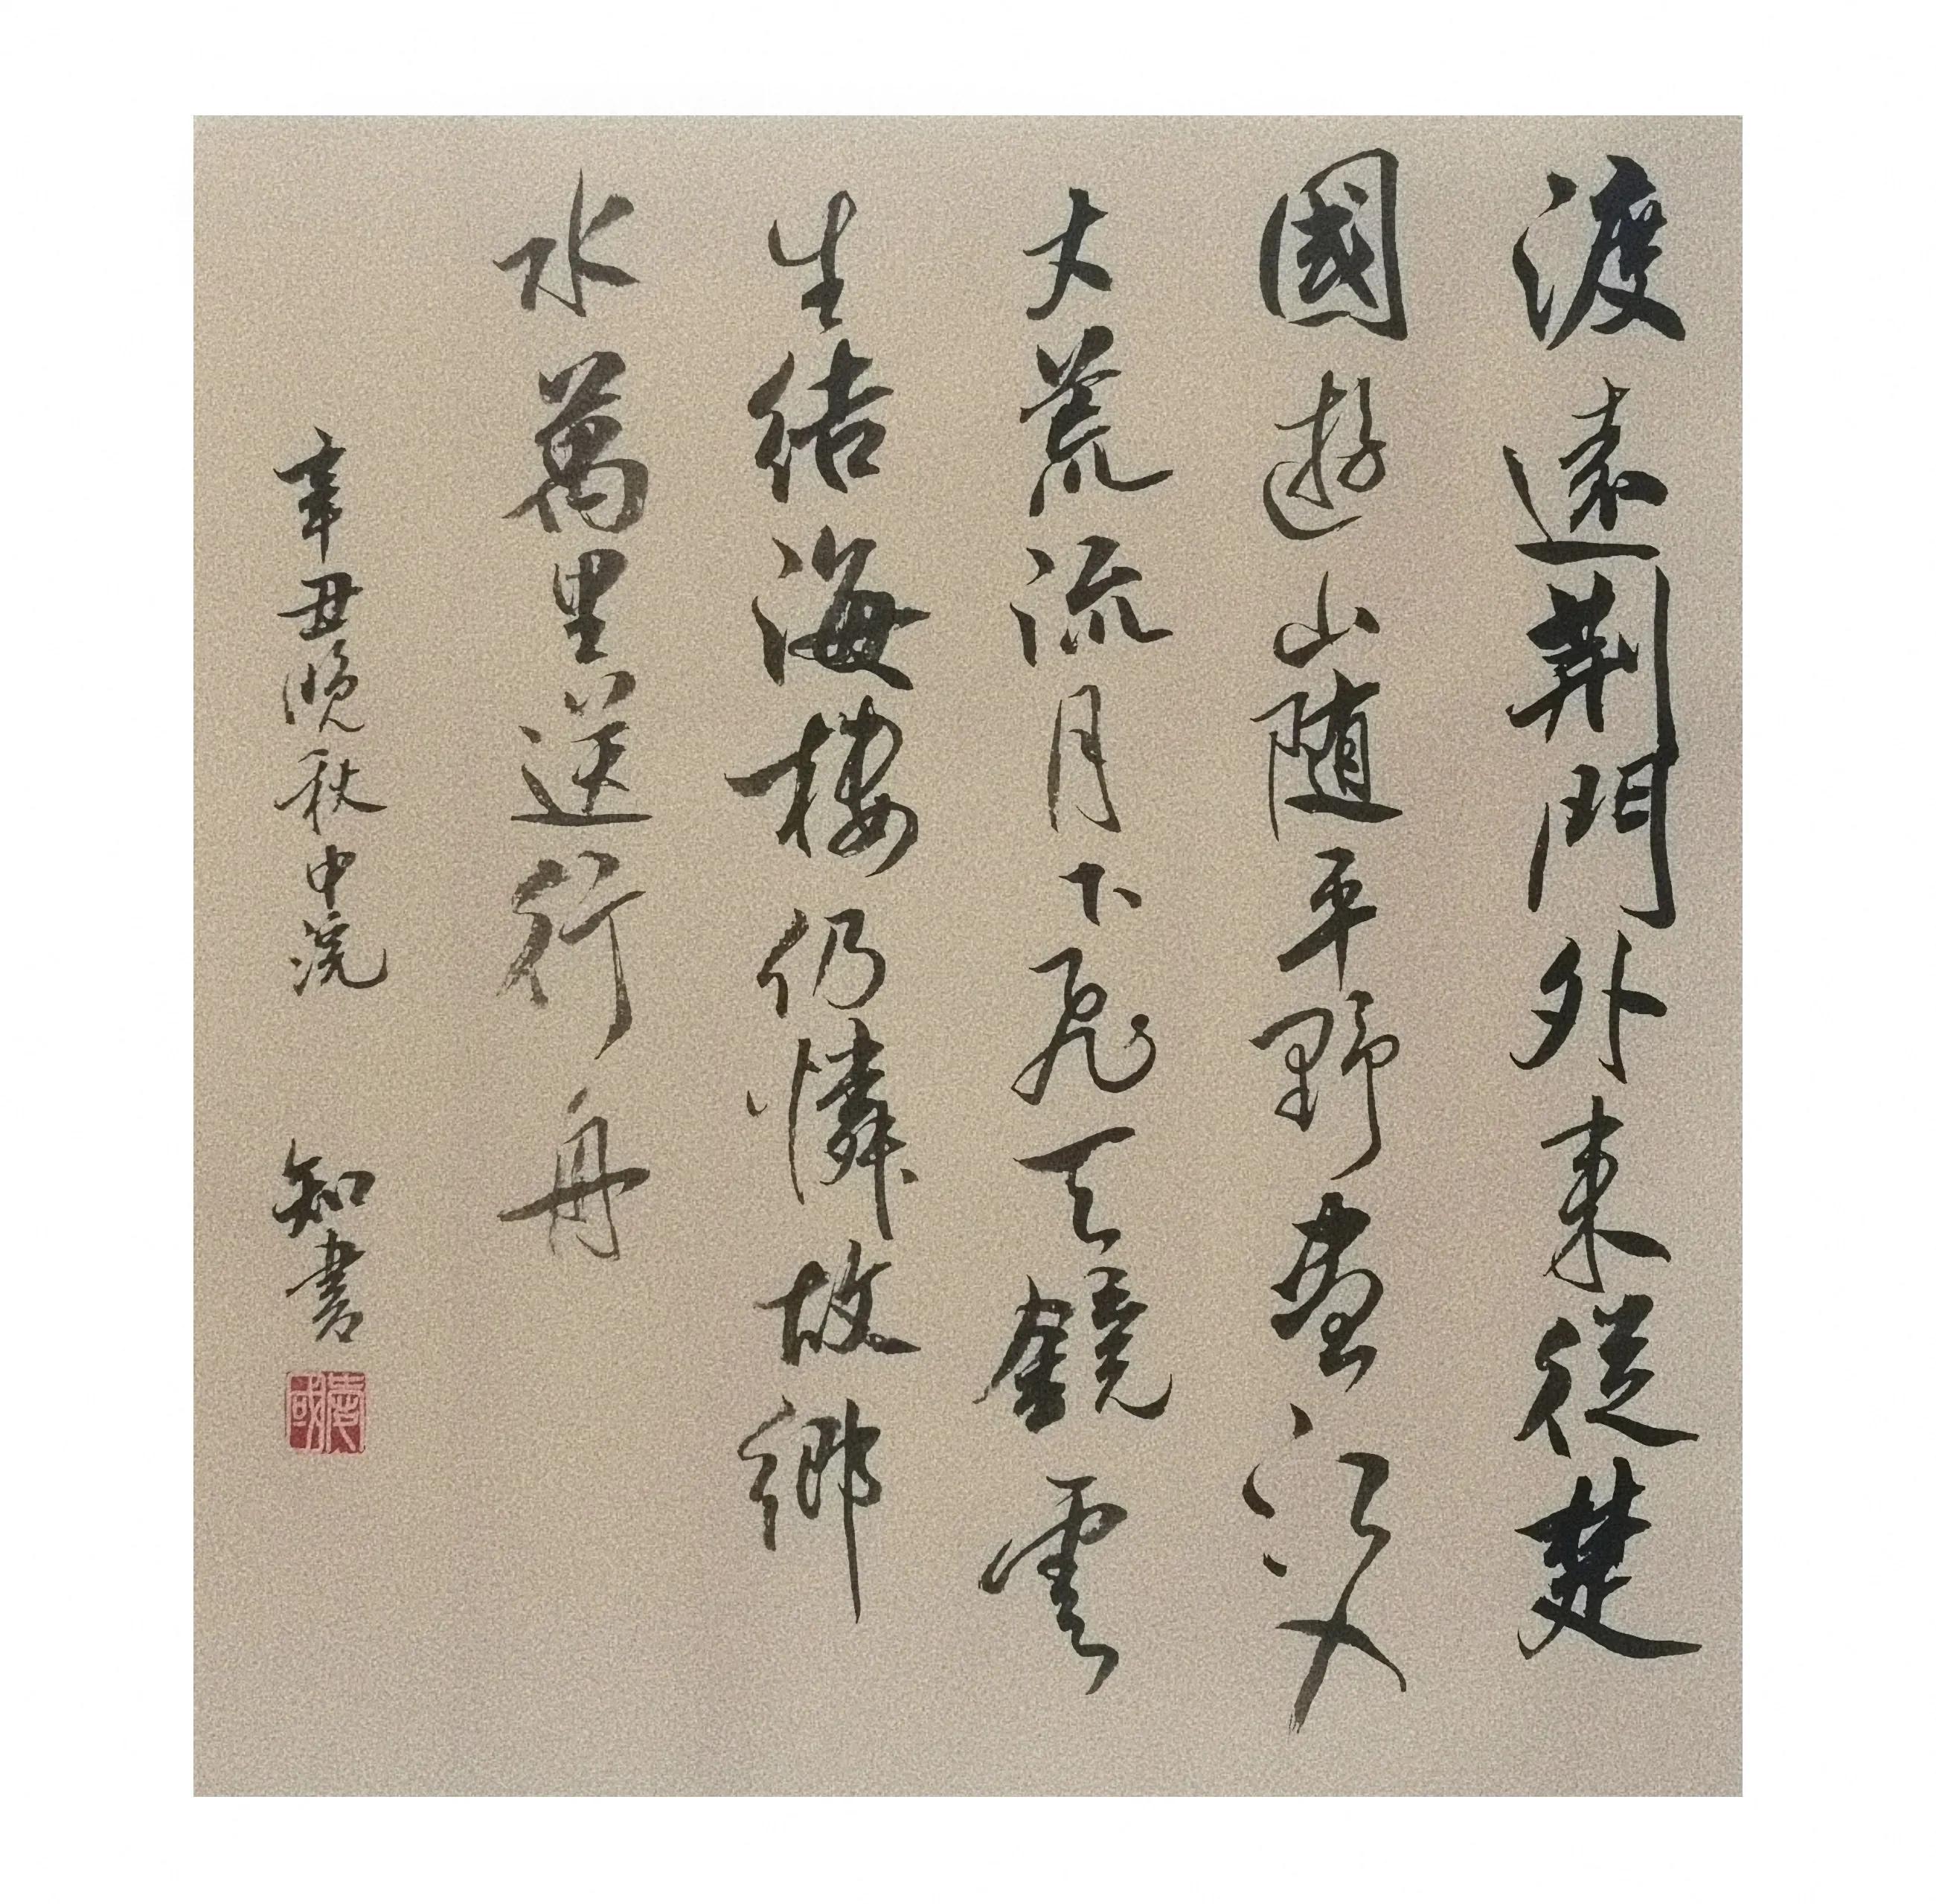 渡遠荊門外来從楚
國遊山随平野盡江入
大荒流月下飛天鏡雲
生結海樓仍憐故鄉
水萬里送行舟
辛丑晚秋中浣 知書